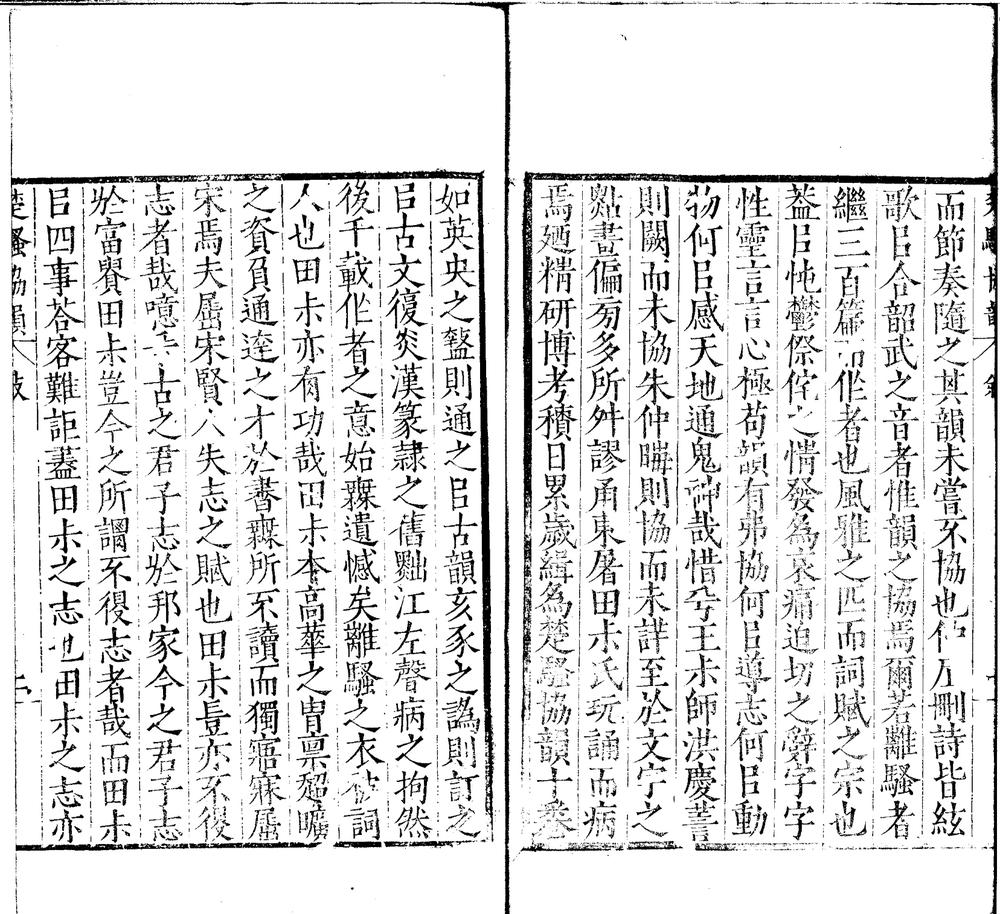 楚騷協韻 敘
而節奏隨之其韻未嘗不協也仲尼刪詩皆絃
歌㠯合韶武之音者惟韻之協焉爾若離騷者
繼三百篇而作者也風雅之匹而詞賦之宗也
蓋㠯忳鬱傺侘之情發為哀痛迫切之辭字字
性靈言言心極苟韻有弗協何㠯導志何㠯動
物何㠯感天地通鬼神哉惜兮王尗師洪慶譱
則闕而未協朱仲晦則協而未詳至於文字之
點畫偏旁多所舛謬甬東屠田尗氏玩誦而病
焉廼精研博考積日累歲緝為楚騷協韻十卷
如英央之盭則通之㠯古韻亥豕之譌則訂之
㠯古文復炎漢篆隸之舊黜江左聲病之拘然
後千載作者之意始無遺憾矣離騷之衣被詞
人也田尗亦有功哉田尗本高華之胄稟超曠
之資負通達之才於書無所不讀而獨寤寐屈
宋焉夫屈宋賢人失志之賦也田尗豈亦不得
志者哉噫古之君子志於邦家今之君子志
於富貴田尗豈今之所謂不得志者哉而田尗
㠯四事荅客難詎蓋田尗之志也田尗之志亦
楚騷協韻 敘 二